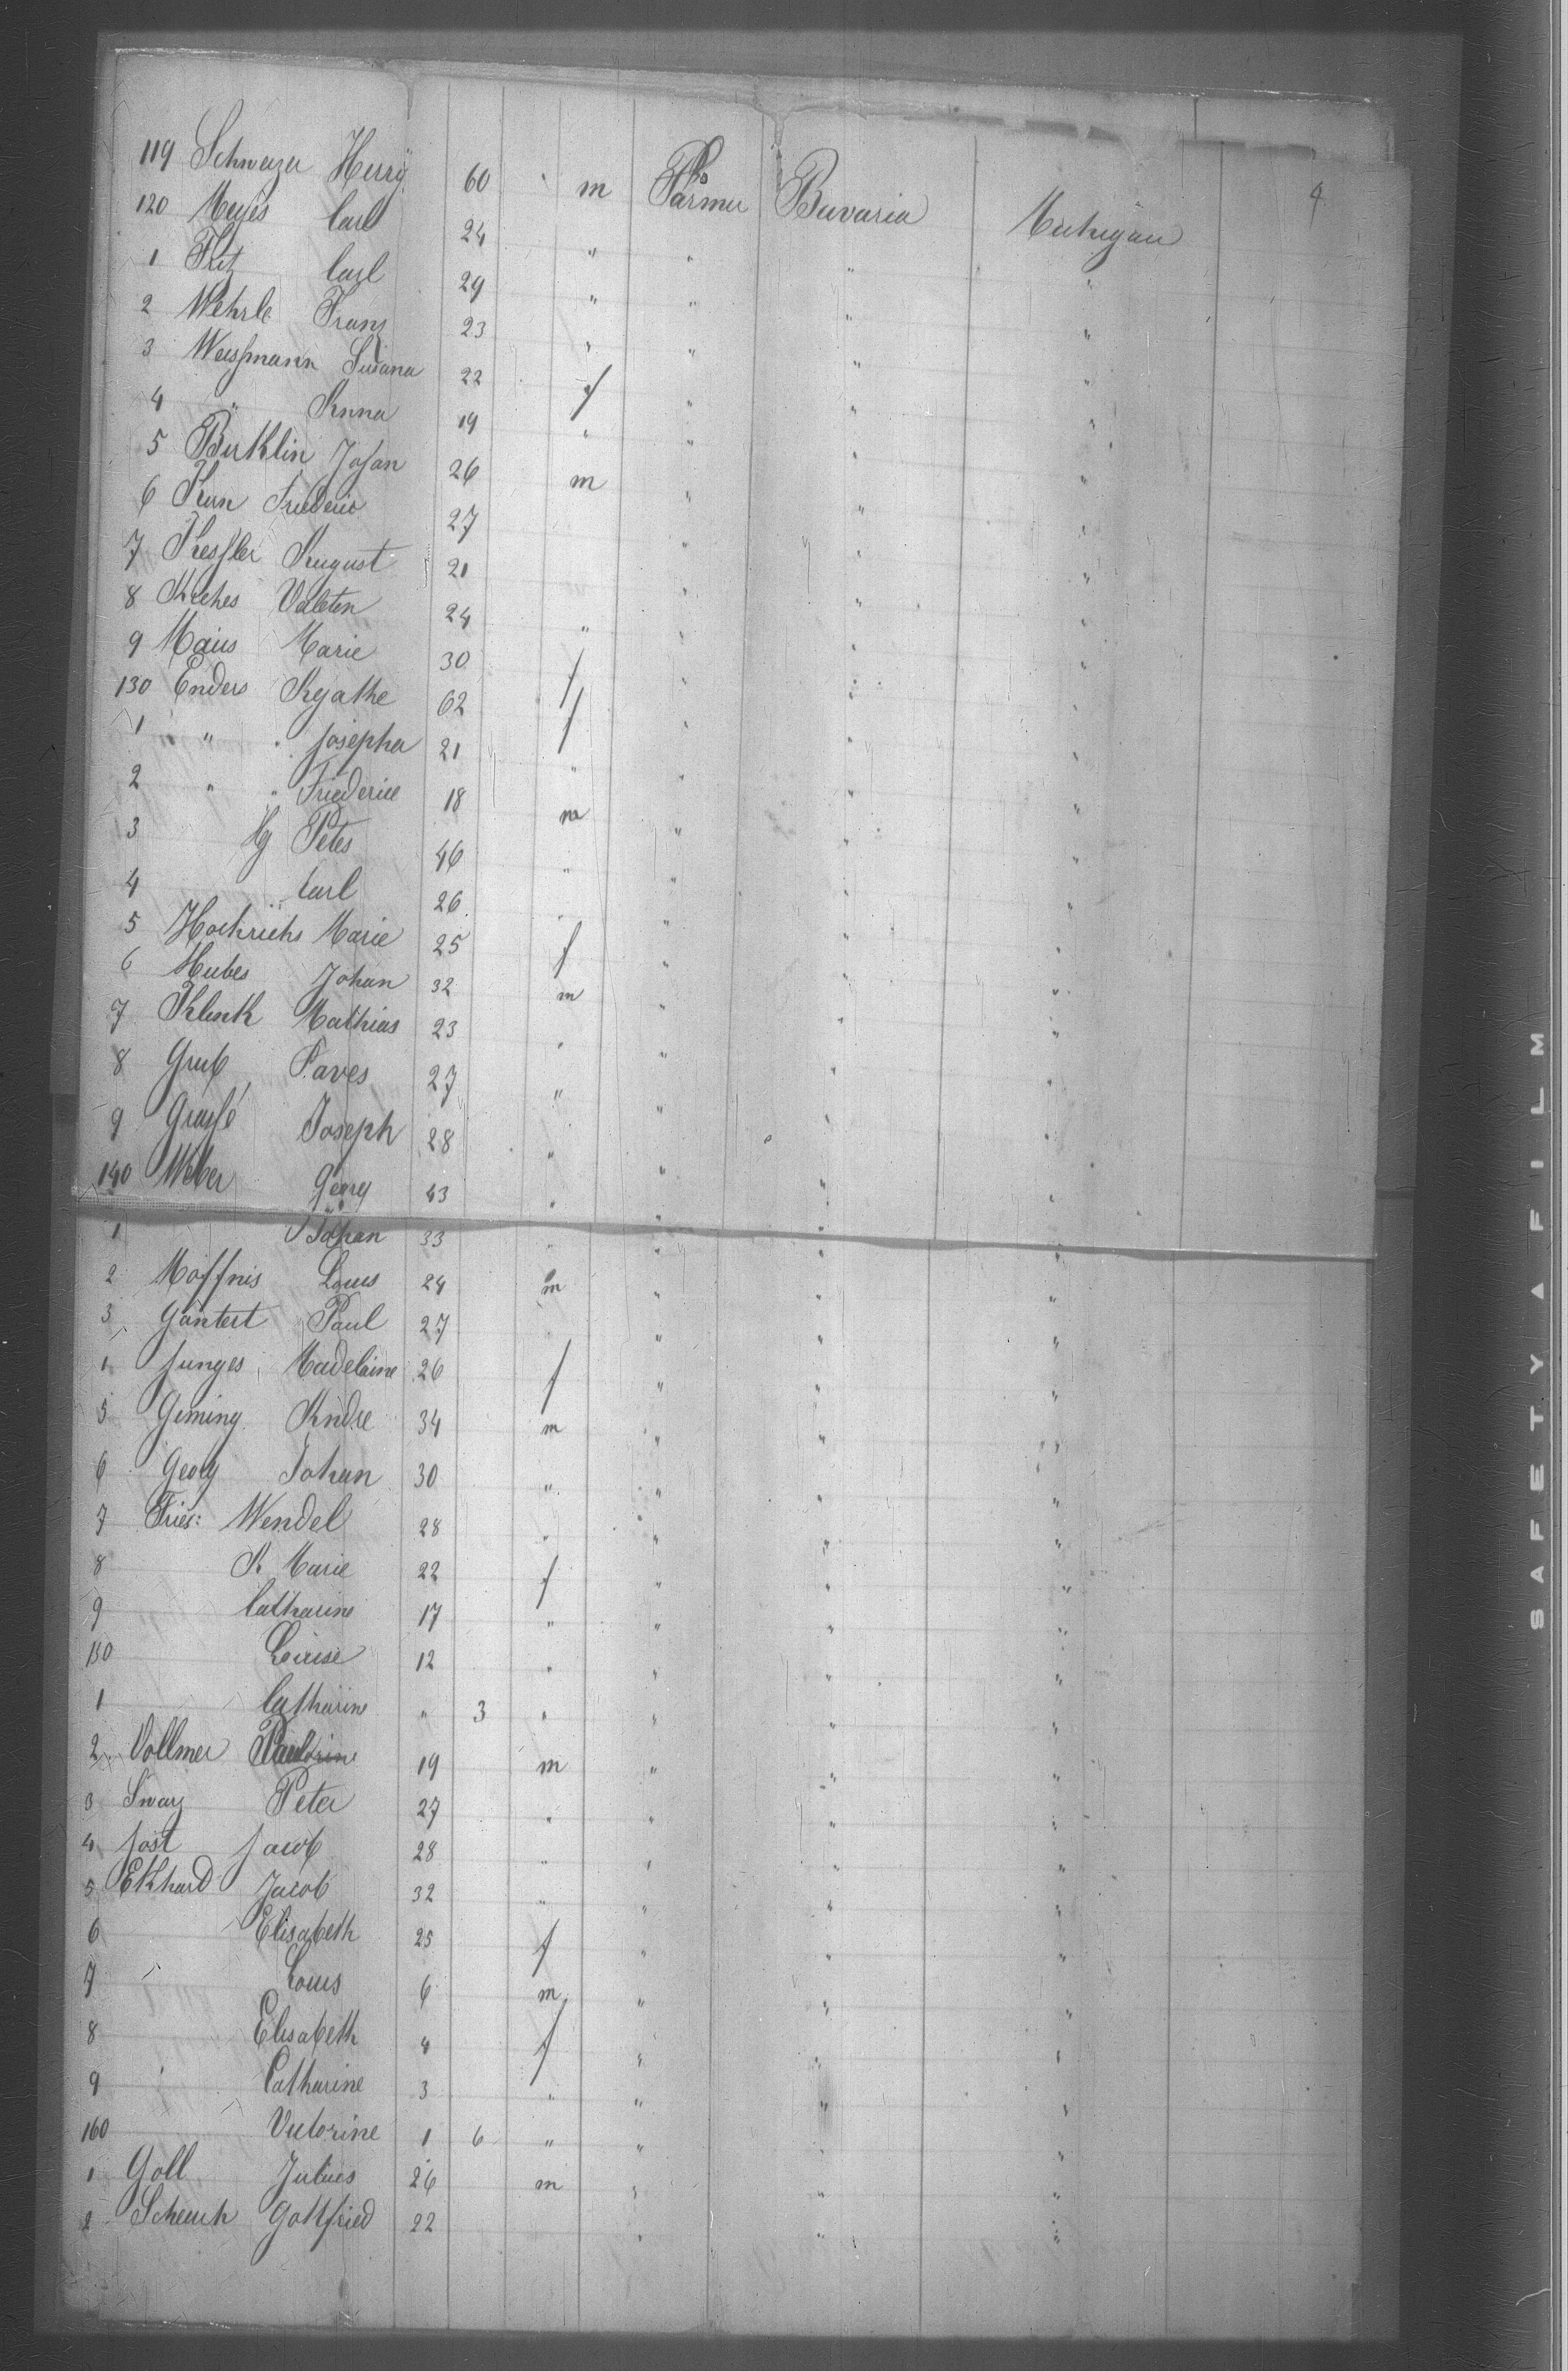 4
119 Schwazer Herry 60 m Farmer Bavaria Michigan
120 Meyes Carl 24 " " " "
1 Fritz Carl 29 " " " "
2 Wehrle Franz 23 " " " "
3 Weissmann Susana 22 f " " "
4 " Anna 19 " " " "
5 Burklin Johan 26 m " " "
6 Kern Friederic 27 " " "
7 Kessler August 21 " " "
8 Valeten 24 " " " "
9 Maius Marie 30 f " " "
130 Enders Agathe 62 f " " "
1 " " Josepha 21 " " " "
2 " " Friederice 18 m " " "
3 Hy Petes 46 " " " "
4 Carl 26 " " " "
5 Hochrichs Marie 25 f " " "
6 Hubes Johan 32 m " " "
7 Klenk Mathias 23 " " " "
8 Grub 27 " " " "
9 Grassé Joseph 28 " " " "
140 Weber Georg 43 " " " "
1 Johan 33 " " " "
2 Moffnis Louis 24 m " " "
3 Gantert Paul 27 " " "
Junges Madelaine 26 f " " "
5 Giming Andre 34 m " " "
6 Georg Johan 30 " " " "
7 Fries: Wendel 28 " " " "
8 A Marie 22 f " " "
9 Catharine 17 " " " "
150 Louise 12 " " " "
1 Catharine " 3 " " " "
2 Vollmer 19 m " " "
3 Swarz Peter 27 " " " "
4 Jost Jacob 28 " " " "
5 Ekhard Jacob 32 " " " "
6 Elisabeth 25 f " " "
7 Louis 6 m " " "
8 Elisabeth 4 f " " "
9 Catharine 3 " " " "
160 Victorine 1 6 " " " "
1 Goll Julius 26 m " " "
2 Schenk Gottfried 22 " " "
SAFETY A FILM